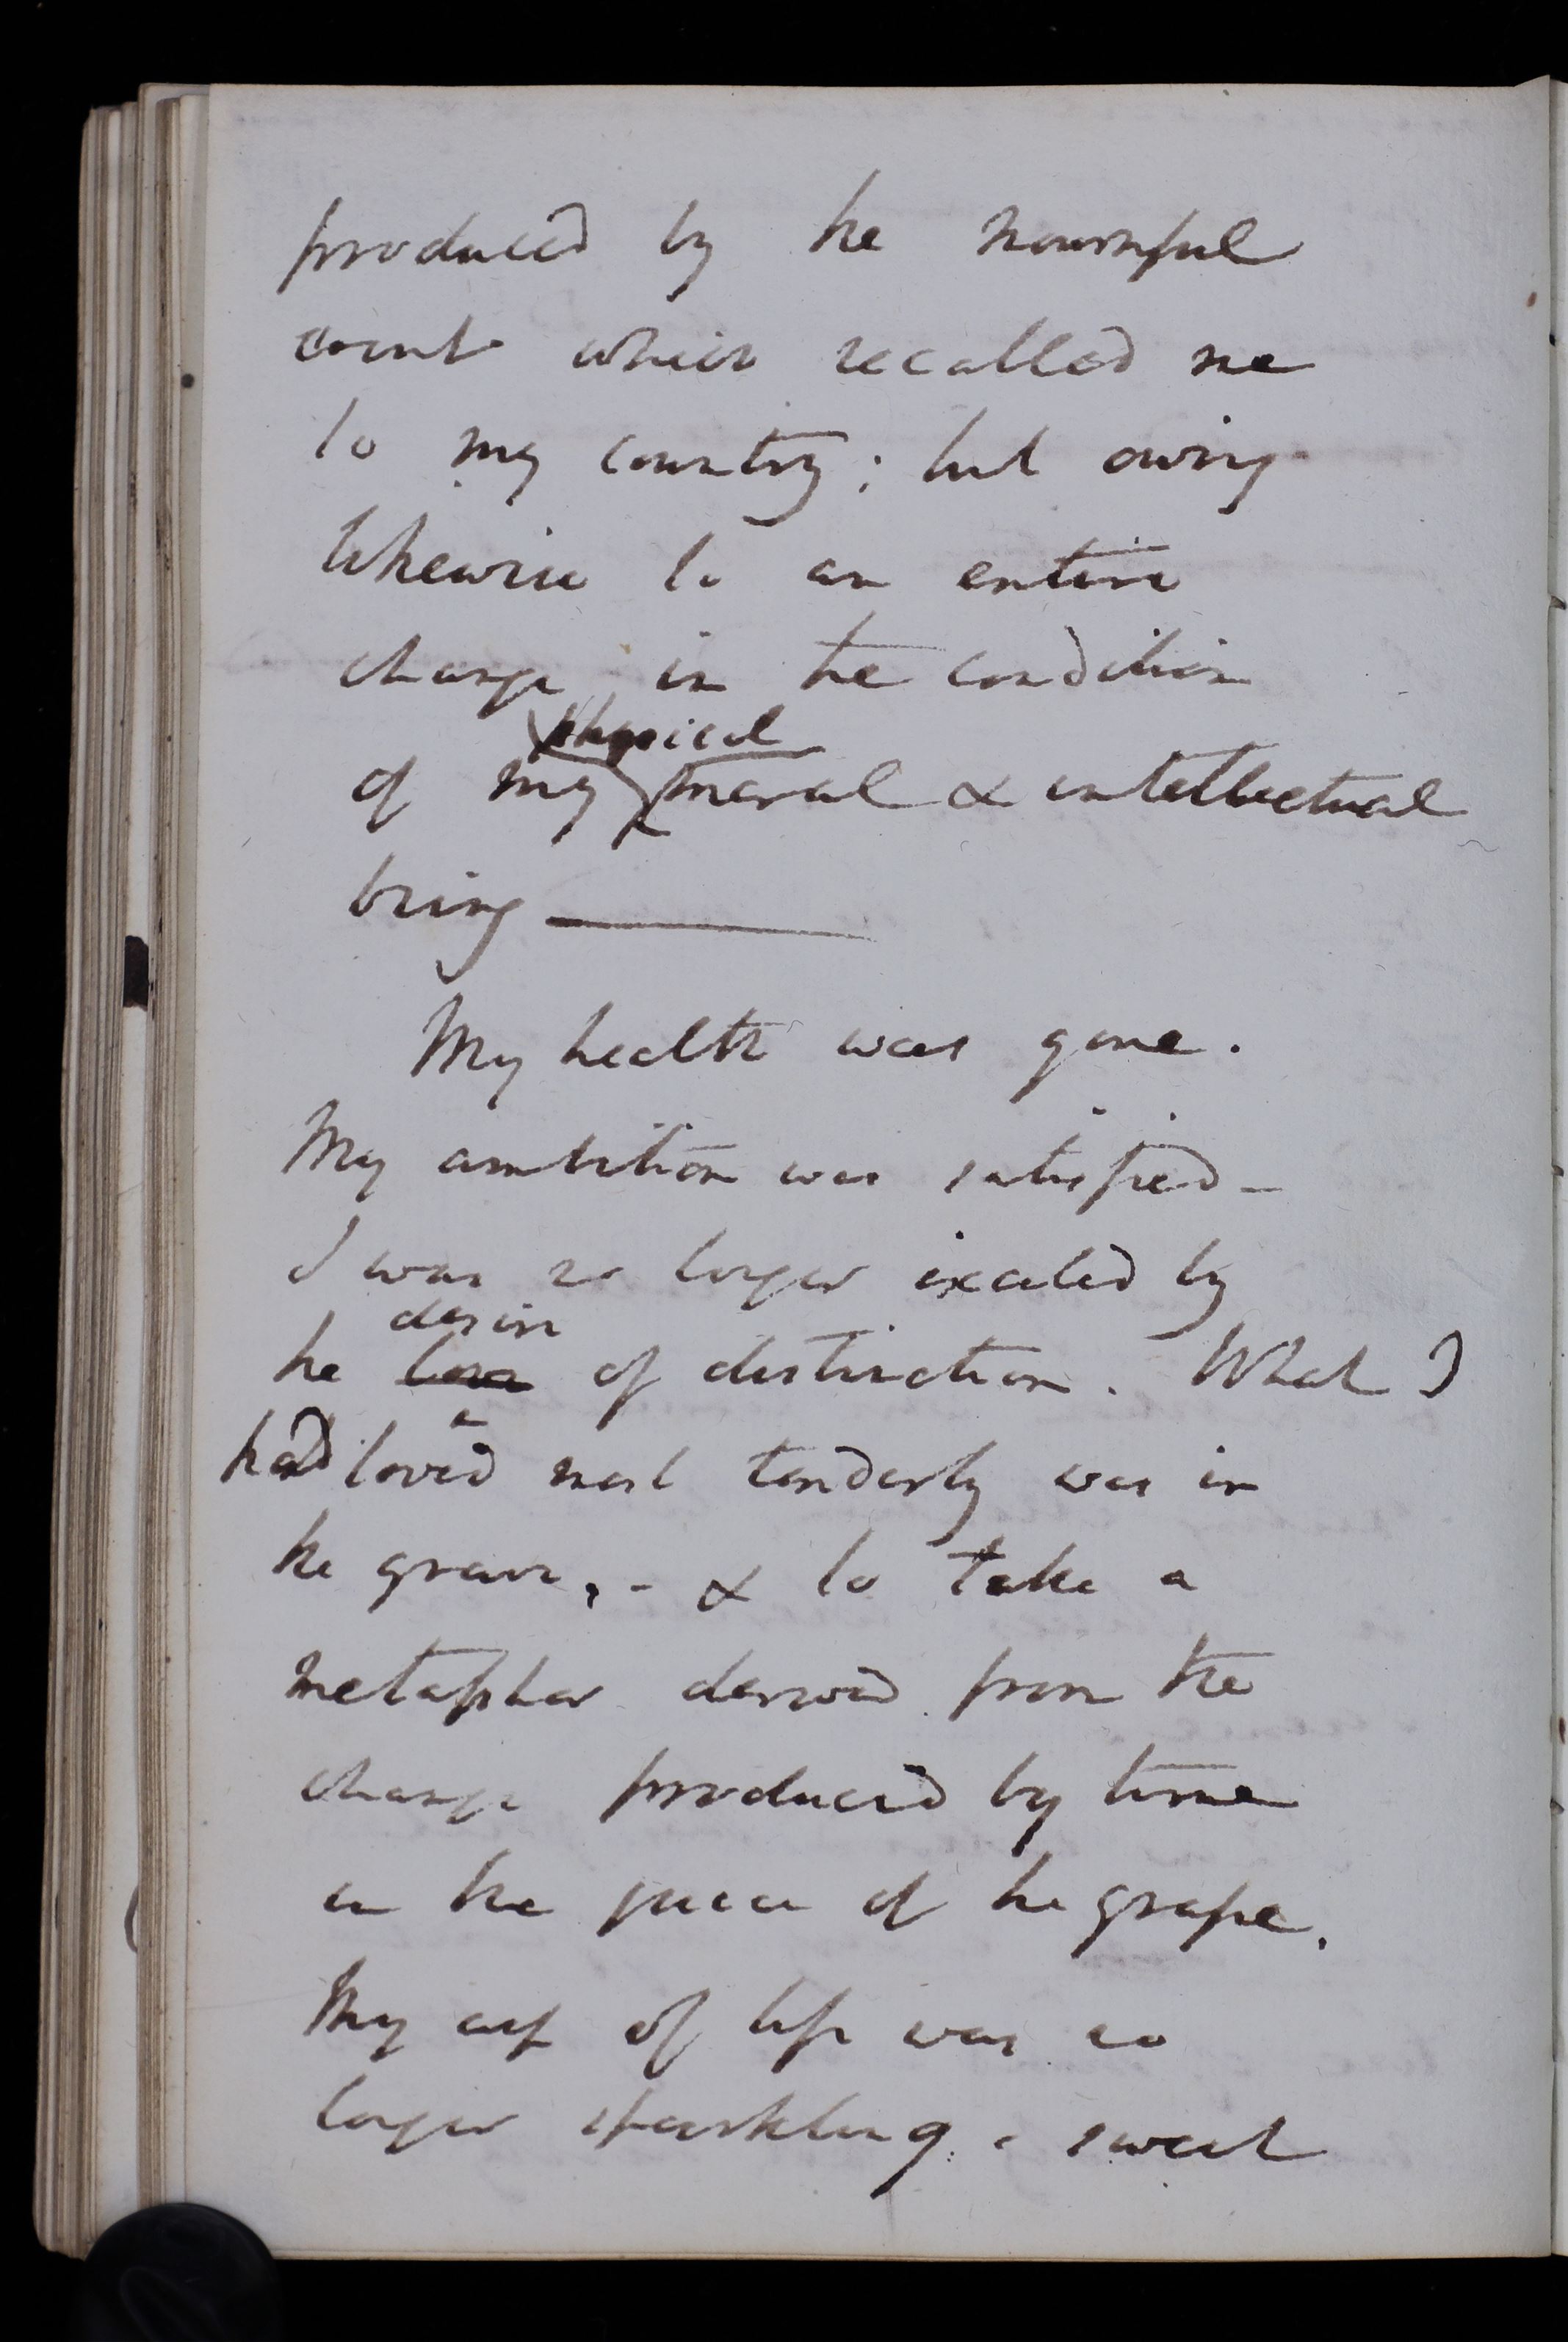 produced by the mournful
event which recalled me
to my country; but owing
likewise to an entire
change in the condition
physical
of my moral & intellectual
being ———
My health was gone.
My ambition was satisfied -
I was no longer excited by
desire
the love of distinction. What I
had loved most tenderly was in
the grave, - & to take a
metaphor derived from the
change produced by time
in the juice of the grape.
My cup of life was no
longer sparkling, sweet